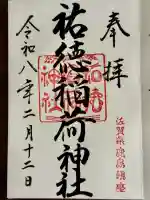 奉拝
佐賀県鹿島鎮座
祐徳稲荷神社
令和八年二月十二日